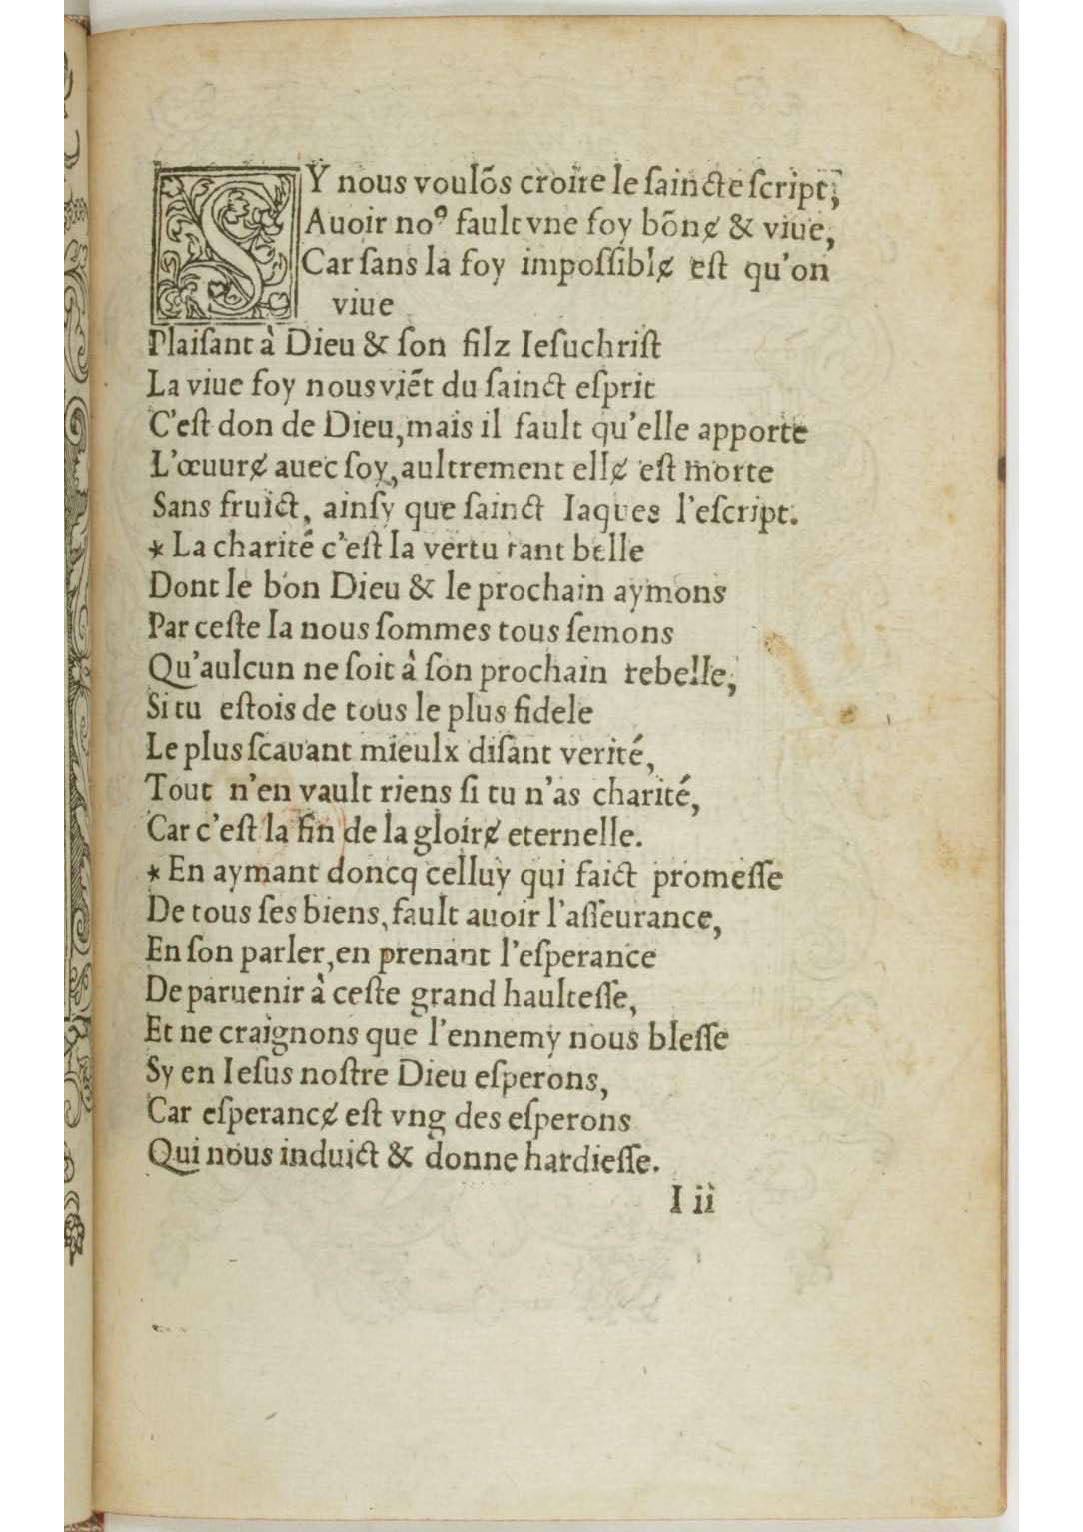 SY nous voulōs croire le ſainċte ſcript,
Auoir noꝰ fault vne foy bōnɇ & viue,
Car ſans la foy impoſſiblɇ eſt qu'on
viue
Plaiſant à Dieu & ſon filz Ieſuchriſt
La viue foy nous viēt du ſainct eſprit
C'eſt don de Dieu, mais il fault qu'elle apporte
L'œuurɇ auec ſoy, aultrement ellɇ eſt morte
Sans fruict, ainſy que ſainct Iaques l'eſcript.
* La charité c'eſt la vertu tant belle
Dont le bon Dieu & le prochain aymons
Par ceſte la nous ſommes tous ſemons
Qu'aulcun ne ſoit à ſon prochain rebelle,
Si tu eſtois de tous le plus fidele
Le plus ſcauant mieulx diſant verité,
Tout n'en vault riens ſi tu n'as charité,
Car c'eſt la fin de la gloirɇ eternelle.
* En aymant doncq celluy qui faict promeſſe
De tous ſes biens, fault auoir l'aſſeurance,
En ſon parler, en prenant l'eſperance
De paruenir à ceſte grand haulteſſe,
Et ne craignons que l'ennemy nous bleſſe
Sy en Ieſus noſtre Dieu eſperons,
Car eſperancɇ eſt vng des eſperons
Qui nous induict & donne hardieſſe.
I ii